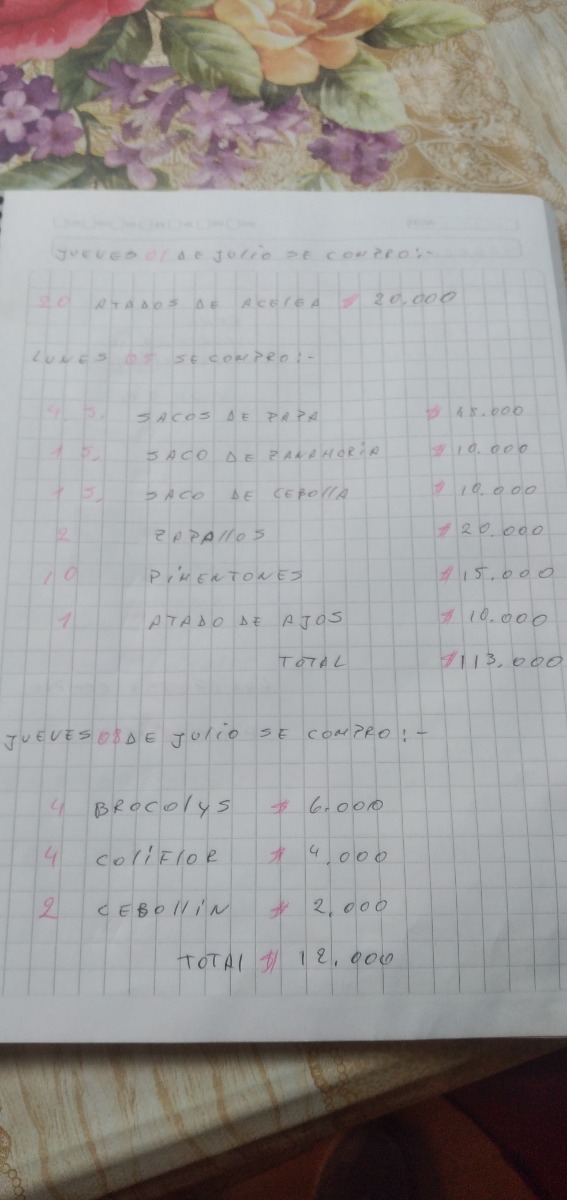 JUEVES 01 DE JULIO SE COMPRO:-
20 ATADOS DE ACELGA $ 20.000
LUNES 05 SE COMPRO:-
4 S. SACOS DE PAPA $ 48.000
1 S. SACO DE ZANAHORIA $ 10.000
1 S. SACO DE CEBOLLA $ 10.000
2 ZAPALLOS $ 20.000
10 PIMENTONES $ 15.000
1 ATADO DE AJOS $ 10.000
TOTAL $ 113.000
JUEVES 08 DE JULIO SE COMPRO:-
4 BROCOLYS $ 6.000
4 COLIFLOR $ 4.000
2 CEBOLLIN $ 2.000
TOTAL $ 12.000